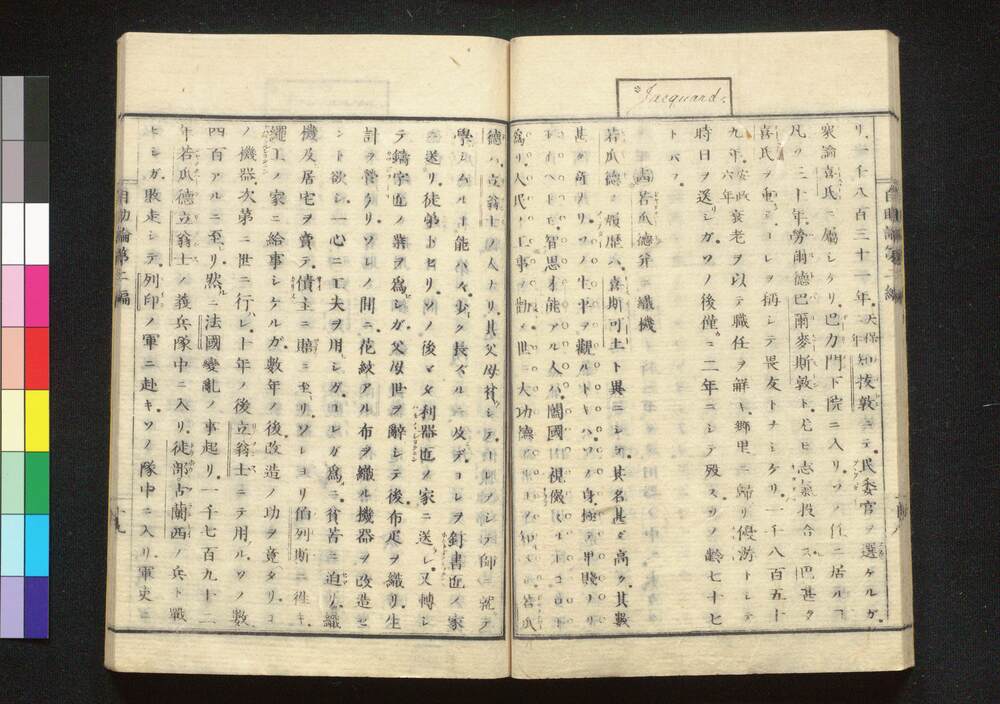 Jacquard
リ、一千八百三十一年、天保二年知抜敦ニテ、民委官ヲ選ケルガ、
衆論喜氏ニ屬シケリ、巴力門下院ニ入リ、ソノ任ニ居ルコ
凡ソ三十年、勞爾德巴爾麥斯敦ト、尤ヒ志氣投合ス、巴甚タ
喜氏ヲ重シ、コレヲ稱シテ畏友トナシケリ、一千八百五十
九年、安政六年衰老ヲ以テ職任ヲ解キ、鄉里ニ歸リ優游トシテ
時日ヲ送シガ、ソノ後僅ニ二年ニシテ歿ス、ソノ齡七十七
トバフ
若瓜德弁ニ織機
若瓜德ノ履歷ハ、喜斯可土ト異ニシテ、其名甚ダ高ク、其藝
甚タ奇ナリ、ソノ生平ヲ觀ルトキハ、ソノ身極テ卑賤ノ
智思才能アル人ハ、闔國ノ視儀
爲リ、人民ノ工事ノ世ニ大功德
德ハ、立翁士ノ人ナリ、其父母貧シテ師ニ就テ
學シムルコ能ハズ、少ク長ズルニ及デ、コレヲ釘書匠ノ家
ニ送リ、徒弟トセリ、ソノ後マタ利器匠ノ家ニ送レ、又轉シ
テ鑄字匠ノ業ヲ爲シガ、父母世ヲ辭シテ後布疋ヲ織リ、生
計ヲ營ケリ、ソレノ間ニ、花紋アル布ヲ織ル機器ヲ改造セ
ント欲シ、一心ニ工夫ヲ用シガ、コレガ爲ニ、貧苦ニ迫リ、織
機及居宅ヲ賣テ、債主ニ賠ニ至リ、ソレヨリ伯列斯ニ往キ、
繩工ノ家ニ給事シケルガ、數年ノ後改造ノ功ヲ竟タリ、コ
ノ機器次第ニ世ニ行レ、十年ノ後立翁士ニテ用ル、ソノ數
四百アルニ至リ、然ニ法國變亂ノ事起リ、一千七百九十二
年、若瓜德立翁士ノ義兵隊中ニ入リ、徒部古蘭西ノ兵ト戰
ヒシガ、敗走シテ、列印ノ軍ニ赴キ、ソノ隊中ニ入リ、軍史ト
自助論第二編